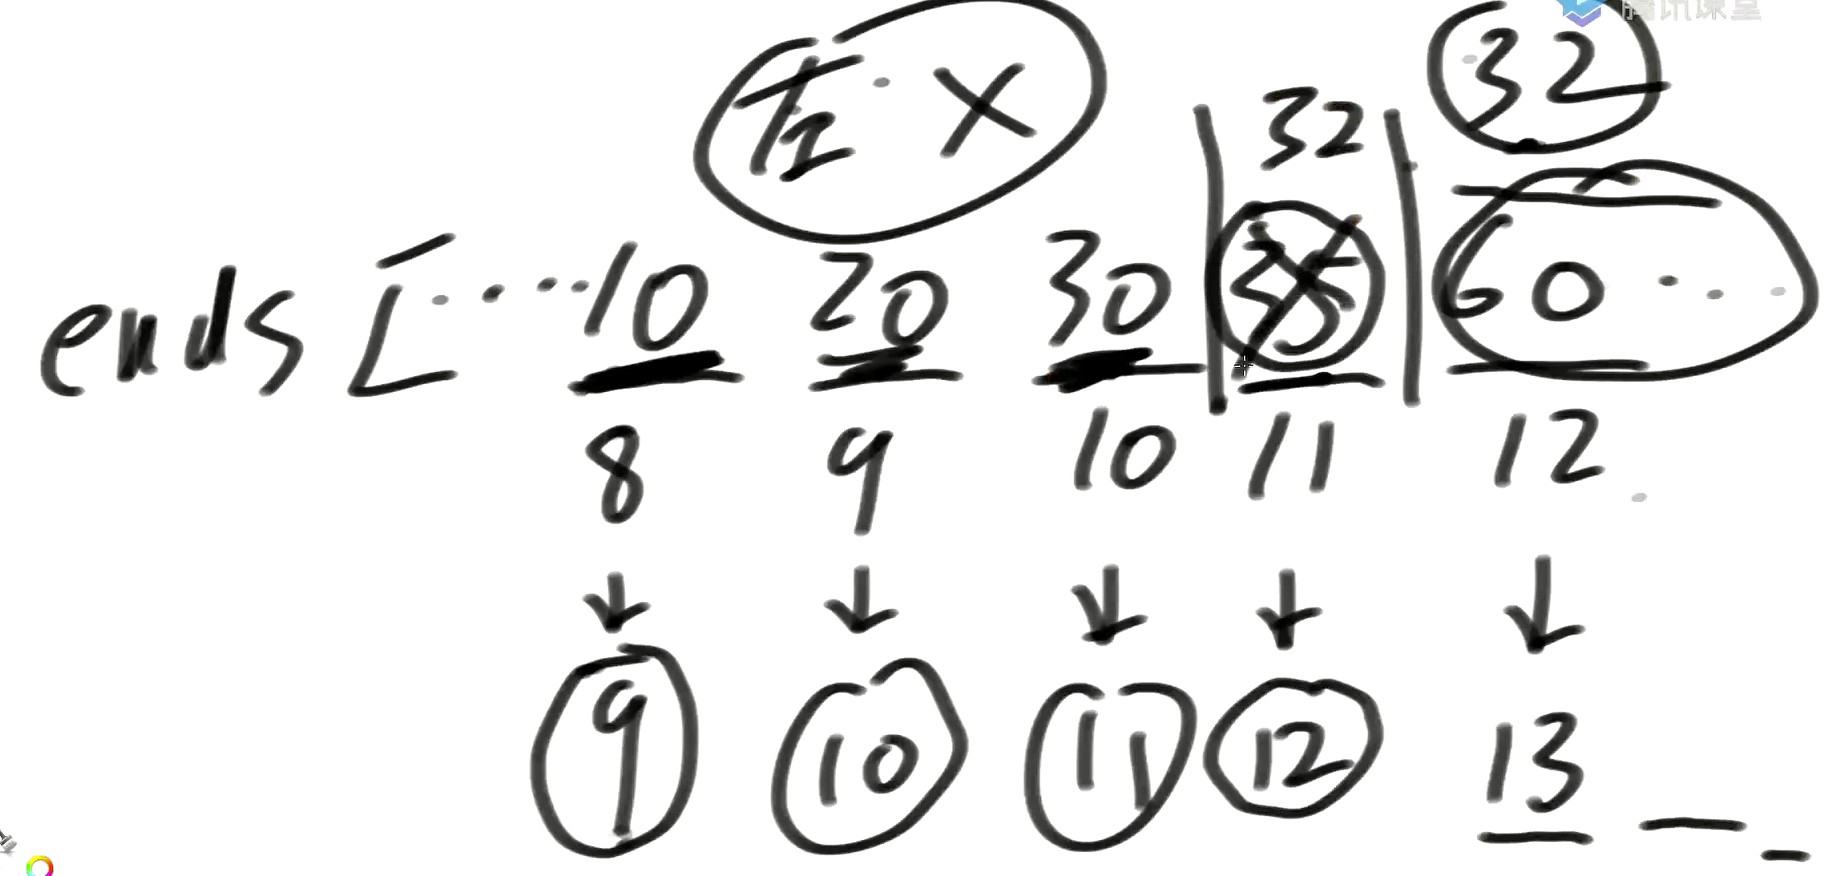 腾讯课堂
左 X 32 32
ends [ ....10 20 30 35 60 ...
8 9 10 11 12
↓ ↓ ↓ ↓ ↓
9 10 11 12 13